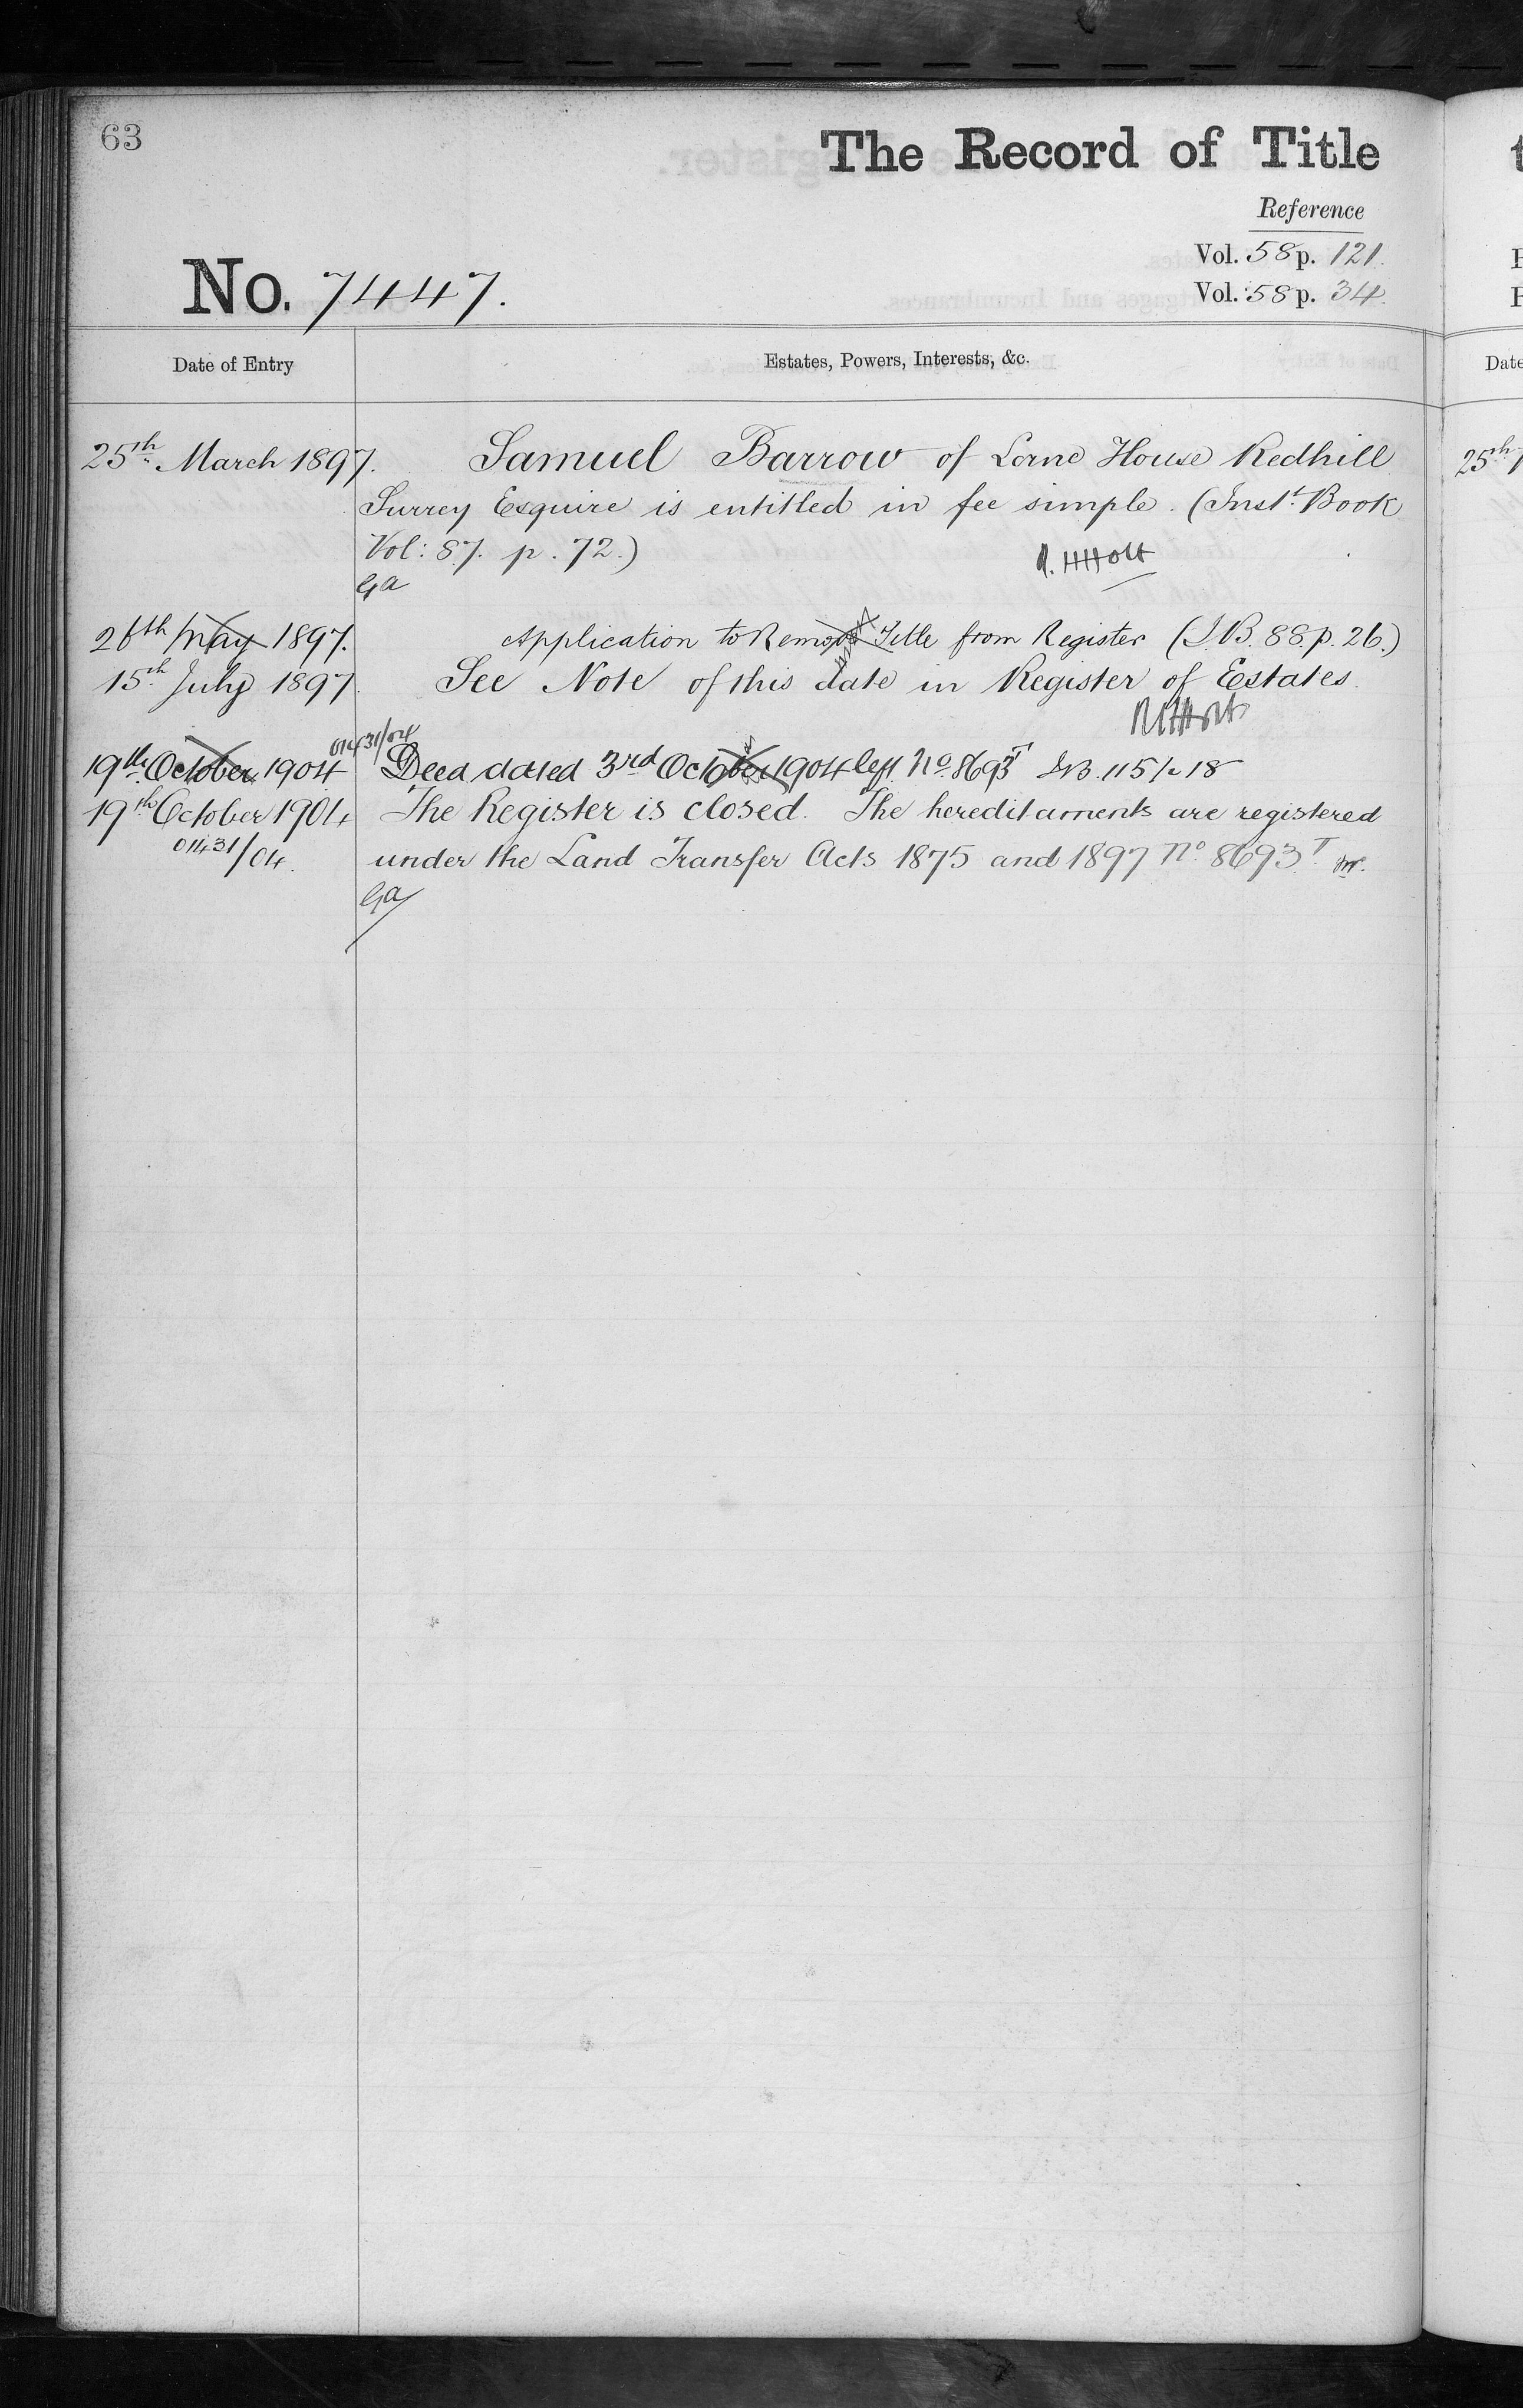 63
The Record of Title
Reference
Vol. 58 p. 121.
Vol. 58 p. 34.
No. 7447.
Date of Entry
Estates, Powers, Interests, &c.
25th March 1897. Samuel Barrow of Lorne House Redhill
Surrey Esquire is entitled in fee simple. (Inst. Book
Vol: 87. p. 72.)
R. H Holt
Ga
26th May 1897. Application to Remove Title from Register (I.B. 88. p. 26.)
15th July 1897. See Note of this date in Register of Estates.
R H Holt
01431/04
19th October 1904 Deed dated 3rd October 1904 left No. 8693T I.B. 115 p. 18
19th October 1904 The Register is closed. The hereditaments are registered
01431/04. under the Land Transfer Acts 1875 and 1897 No. 8693T.
Ga
Date
25th